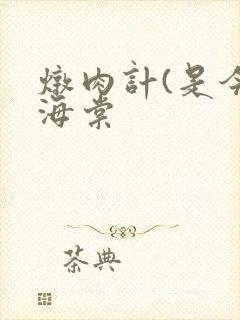 燉肉計(是今
海棠
茶典